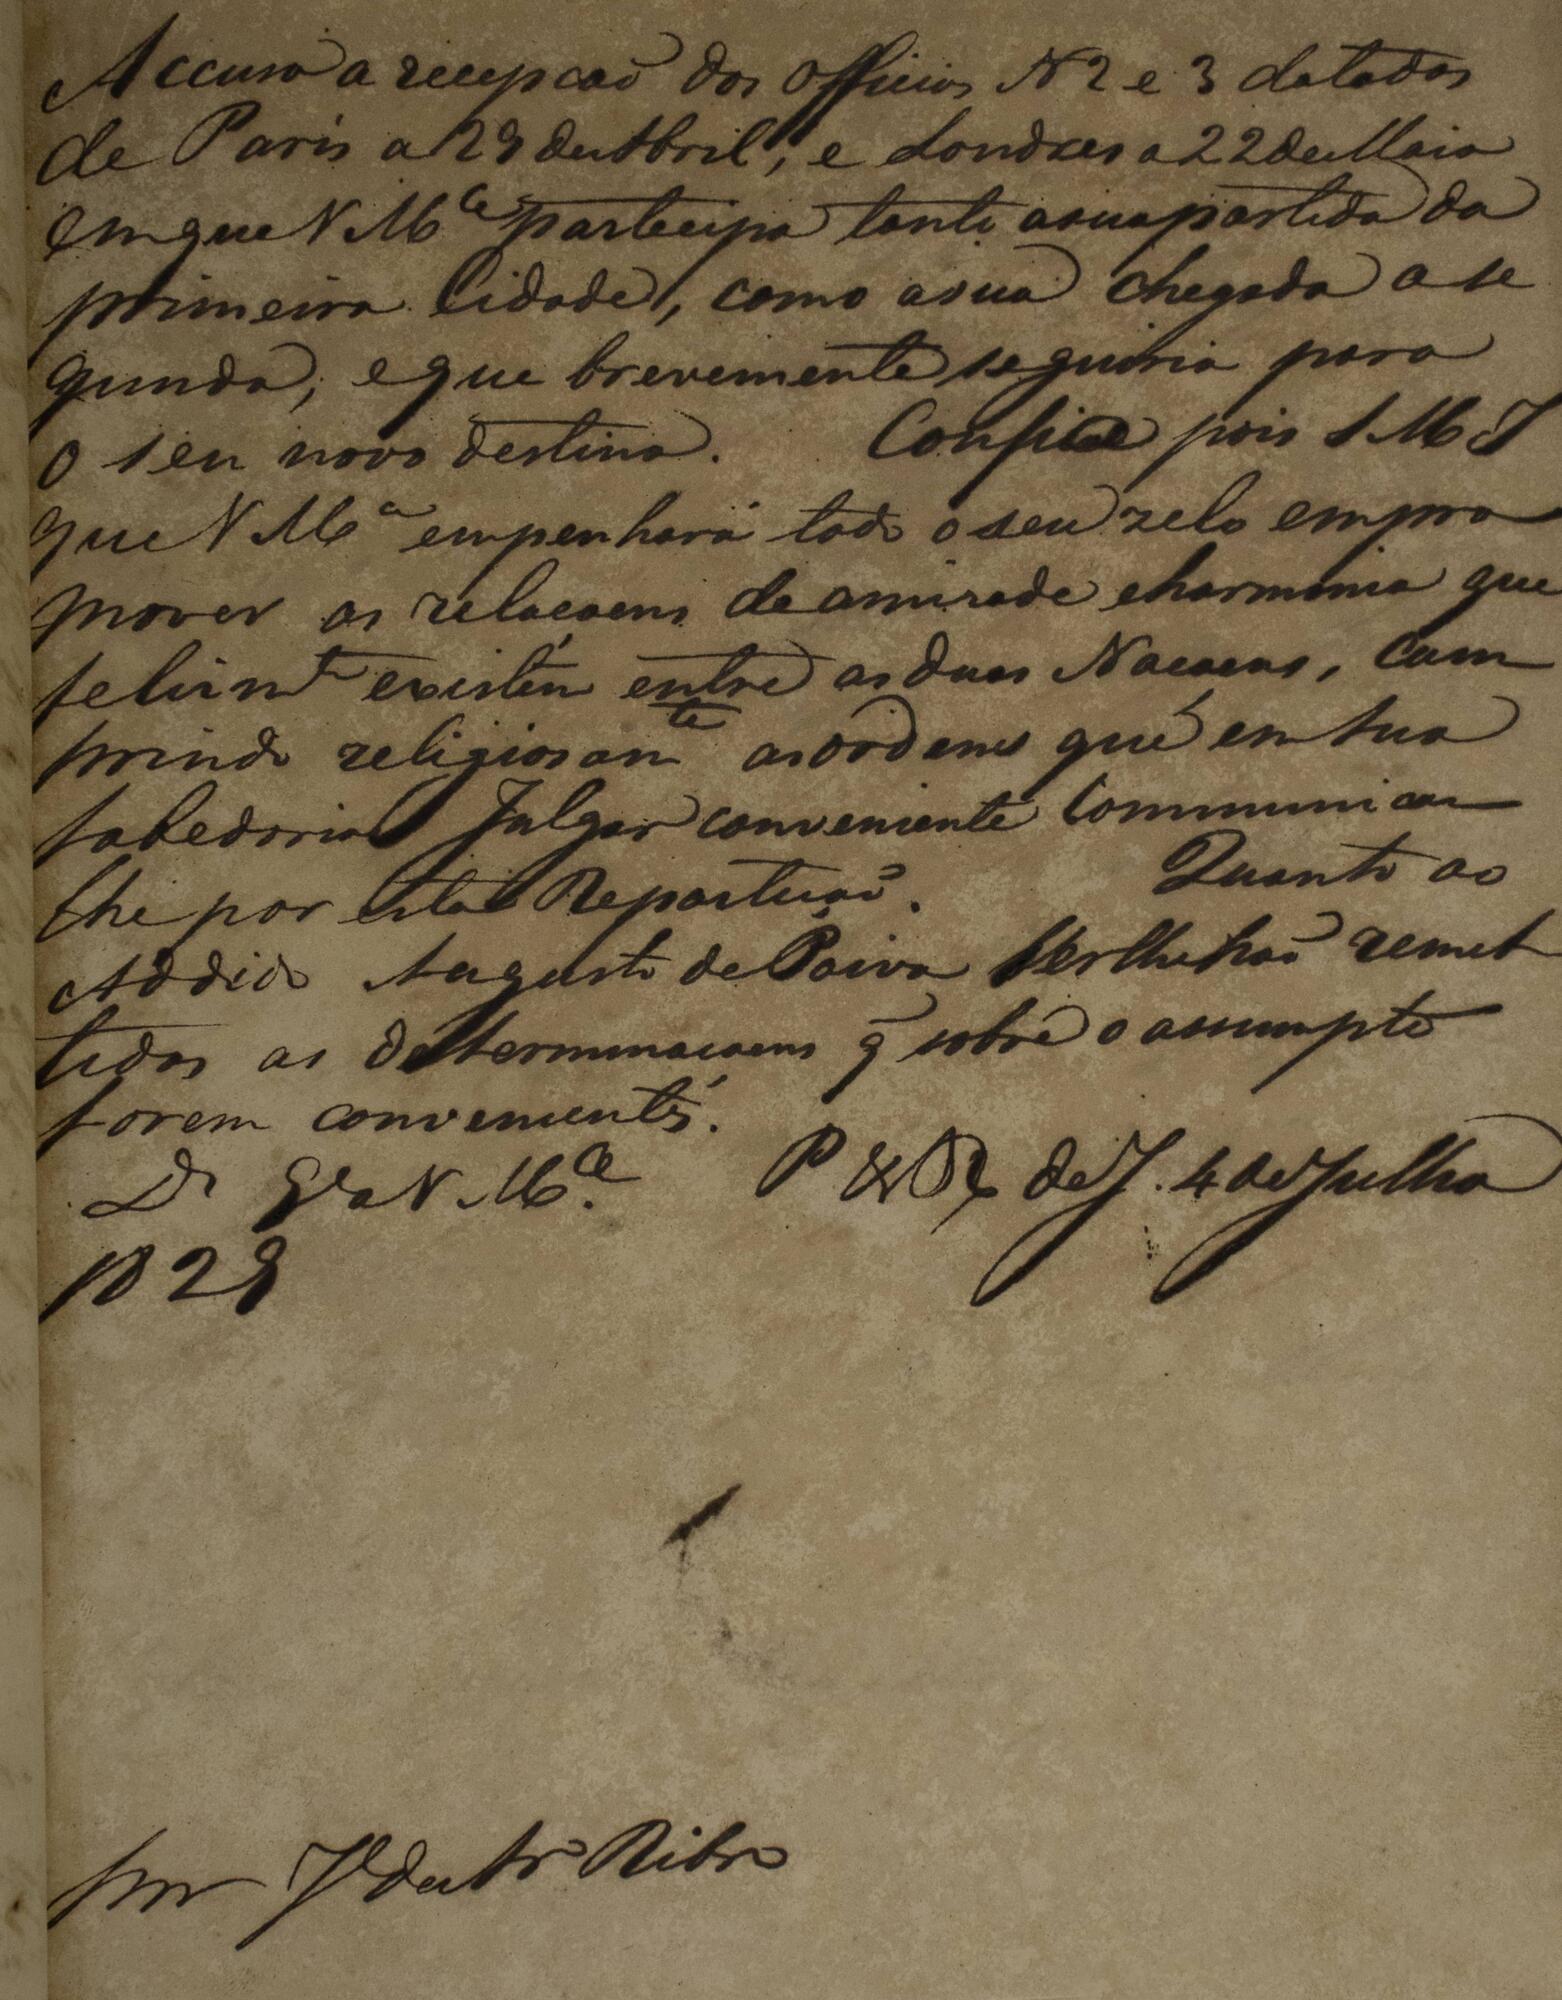 Accuso a recepcaõ dos Officios N 2 e 3 datados
de Paris a 29 de Abril, e Londres a 22 de Maio
em que V M.ce participa tanto a sua partida da
primeira Cidade, como a sua chegada a se
gunda, e que brevemente seguiria para
o seu novo destino. Confia pois S M I
que V M.ce empenhará todo o seu zelo em pro
mover as relacoens de amizade e harmonia que
felizm.te existem entre as duas Nacoens, cum
prindo religiosam.te as ordens que em sua
sabedoria Julgar conveniente Communicar
lhe por esta Reparticaõ. Quanto ao
Addido Augusto de Paiva Ser lhe haõ remet
tidas as determinacoens q̃ sobre o assumpto
forem convenientes.
D.s G.e a V M.ce P de J. 4 de Julho
1829
Snr J.e de Ar.o Ribr.o